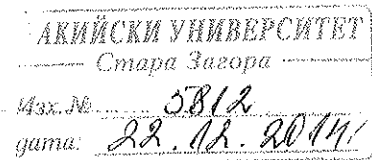 АКИЙСКИ УНИВЕРСИТЕТ
Стара Загора
Изх. № 5812
дата: 22.12.2014